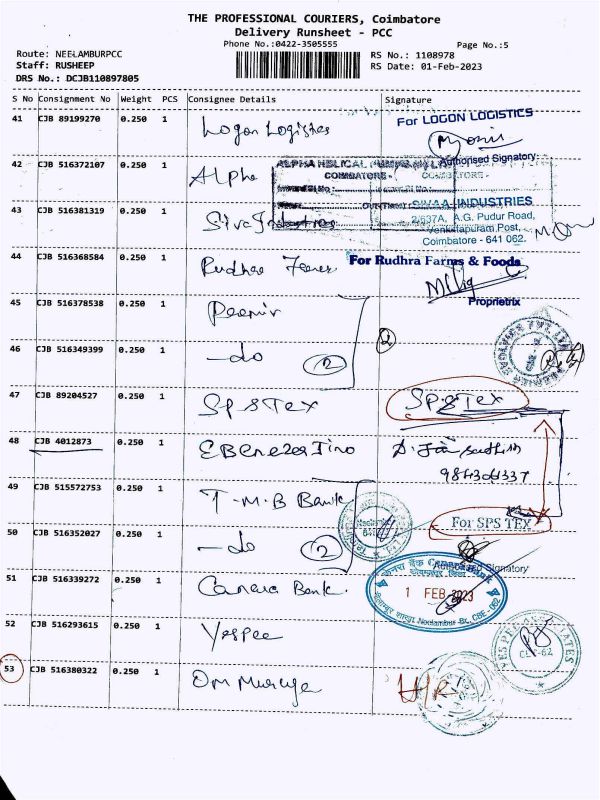 THE PROFESSIONAL COURIERS, Coimbatore
Delivery Runsheet - PCC
Phone No.:0422-3505555
Page No.:5
Route: NEELAMBURPCC
RS No.: 1108978
Staff: RUSHEEP
RS Date: 01-Feb-2023
DRS No.: DCJB110897805
S No Consignment No Weight PCS Consignee Details Signature
41 CJB 89199270 0.250 1 Logon Logistes
For LOGON LOGISTICS
Authorised Signatory
42 CJB 516372107 0.250 1 Alpha
COIMBATORE
43 CJB 516381319 0.250 1 Siva Industries
SIVAA INDUSTRIES
2/537A, A.G. Pudur Road,
Venkatapuram Post,
Coimbatore - 641 062.
44 CJB 516368584 0.250 1 Rudhra
For Rudhra Farms & Foods
Proprietrix
45 CJB 516378538 0.250 1
46 CJB 516349399 0.250 1 - do 2
47 CJB 89204527 0.250 1 SPS Tex SPS Tex
48 CJB 4012873 0.250 1 EBenezer Tino
49 CJB 515572753 0.250 1 T-M.B Bank
For SPS TEX
50 CJB 516352027 0.250 1 - do 2
Authorised Signatory
51 CJB 516339272 0.250 1 Canara Bank
1 FEB 2023
52 CJB 516293615 0.250 1 Yespee
CBE-62
53 CJB 516380322 0.250 1 Om Muruga